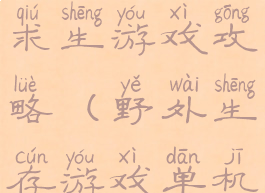 qiú shēng yóu xì gōng
求生游戏攻
lüè yě wài shēng
略（野外生
cún yóu xì dān jī
存游戏单机